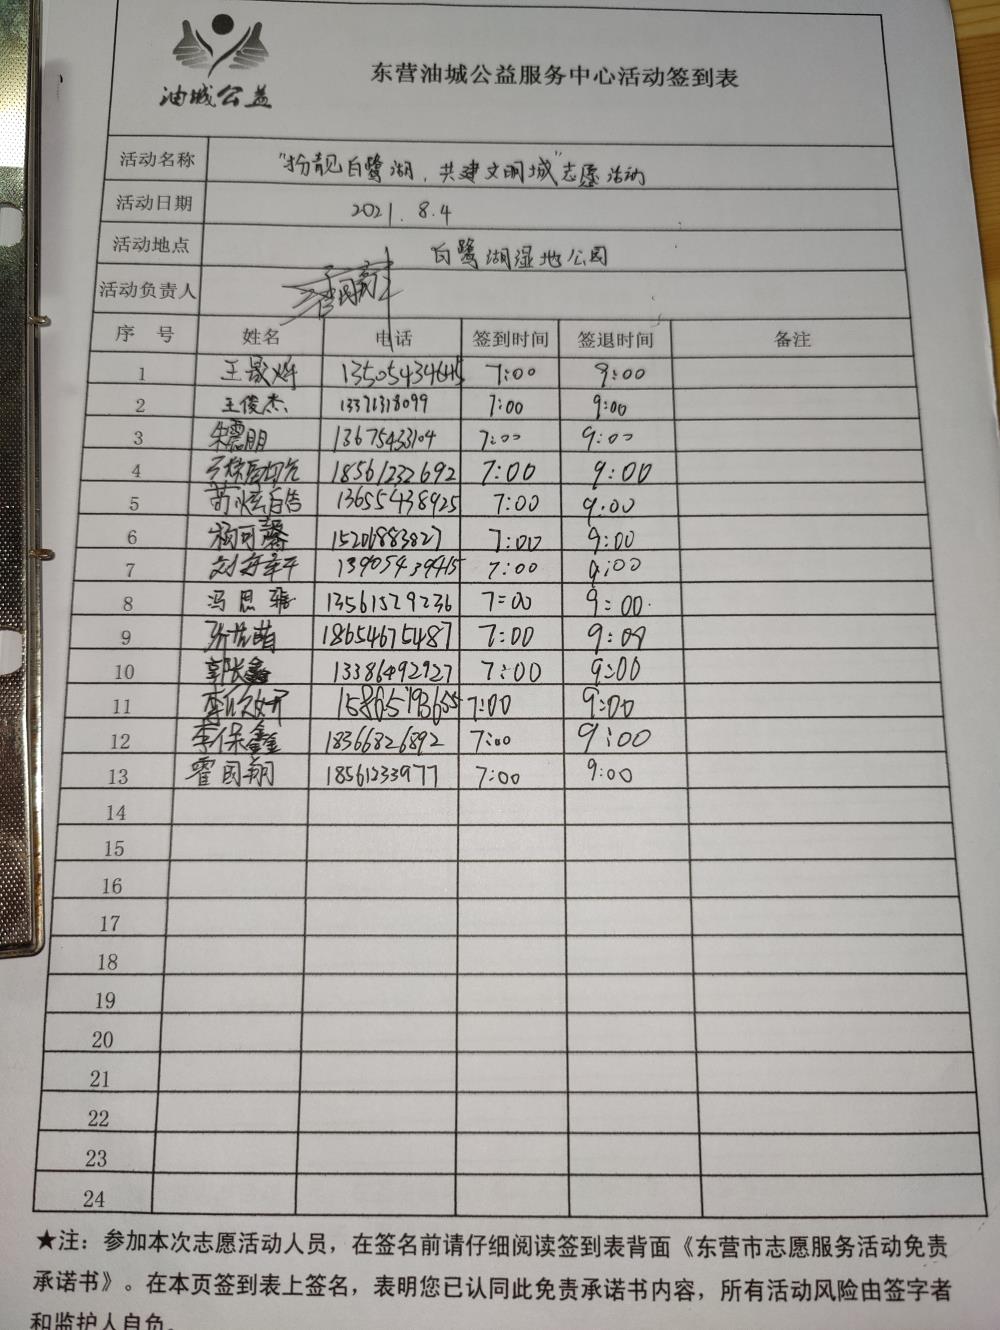 油城公益
东营油城公益服务中心活动签到表
活动名称 "扮靓白鹭湖，共建文明城"志愿活动
活动日期 2021.8.4
活动地点 白鹭湖湿地公园
活动负责人
序 号 姓名 电话 签到时间 签退时间 备注
1 13505434645 7:00 9:00
2 王俊杰 13371318099 7:00 9:00
3 朱震朋 13675433104 7:00 9:00
4 18561232692 7:00 9:00
5 13655438925 7:00 9:00
6 杨可馨 15206883827 7:00 9:00
7 13905439445 7:00 9:00
8 冯思雅 13561529236 7:00 9:00.
9 18654675487 7:00 9:00
10 郭长鑫 13386492927 7:00 9:00
11 李欣妍 15865193655 7:00 9:00
12 李保鑫 18366826892 7:00 9:00
13 霍国翔 18561233977 7:00 9:00
14
15
16
17
18
19
20
21
22
23
24
★注：参加本次志愿活动人员，在签名前请仔细阅读签到表背面《东营市志愿服务活动免责
承诺书》。在本页签到表上签名，表明您已认同此免责承诺书内容，所有活动风险由签字者
和监护人自负。